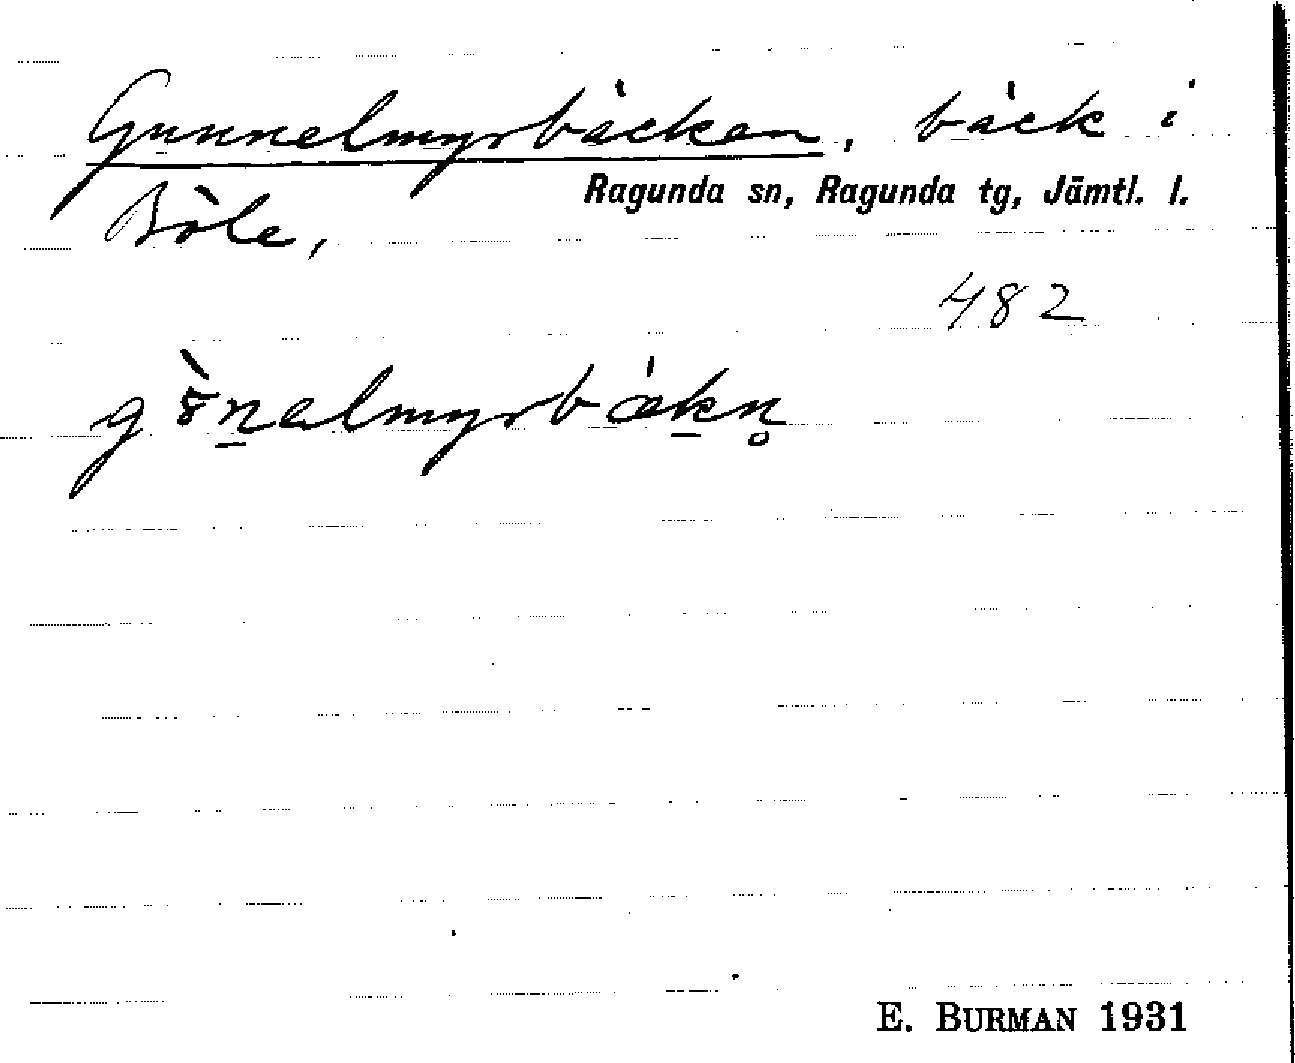 Gunnelmyrbäcken, bäck i
Ragunda sn, Ragunda tg, Jämtl. l.
Böle,
482
E. BURMAN 1931